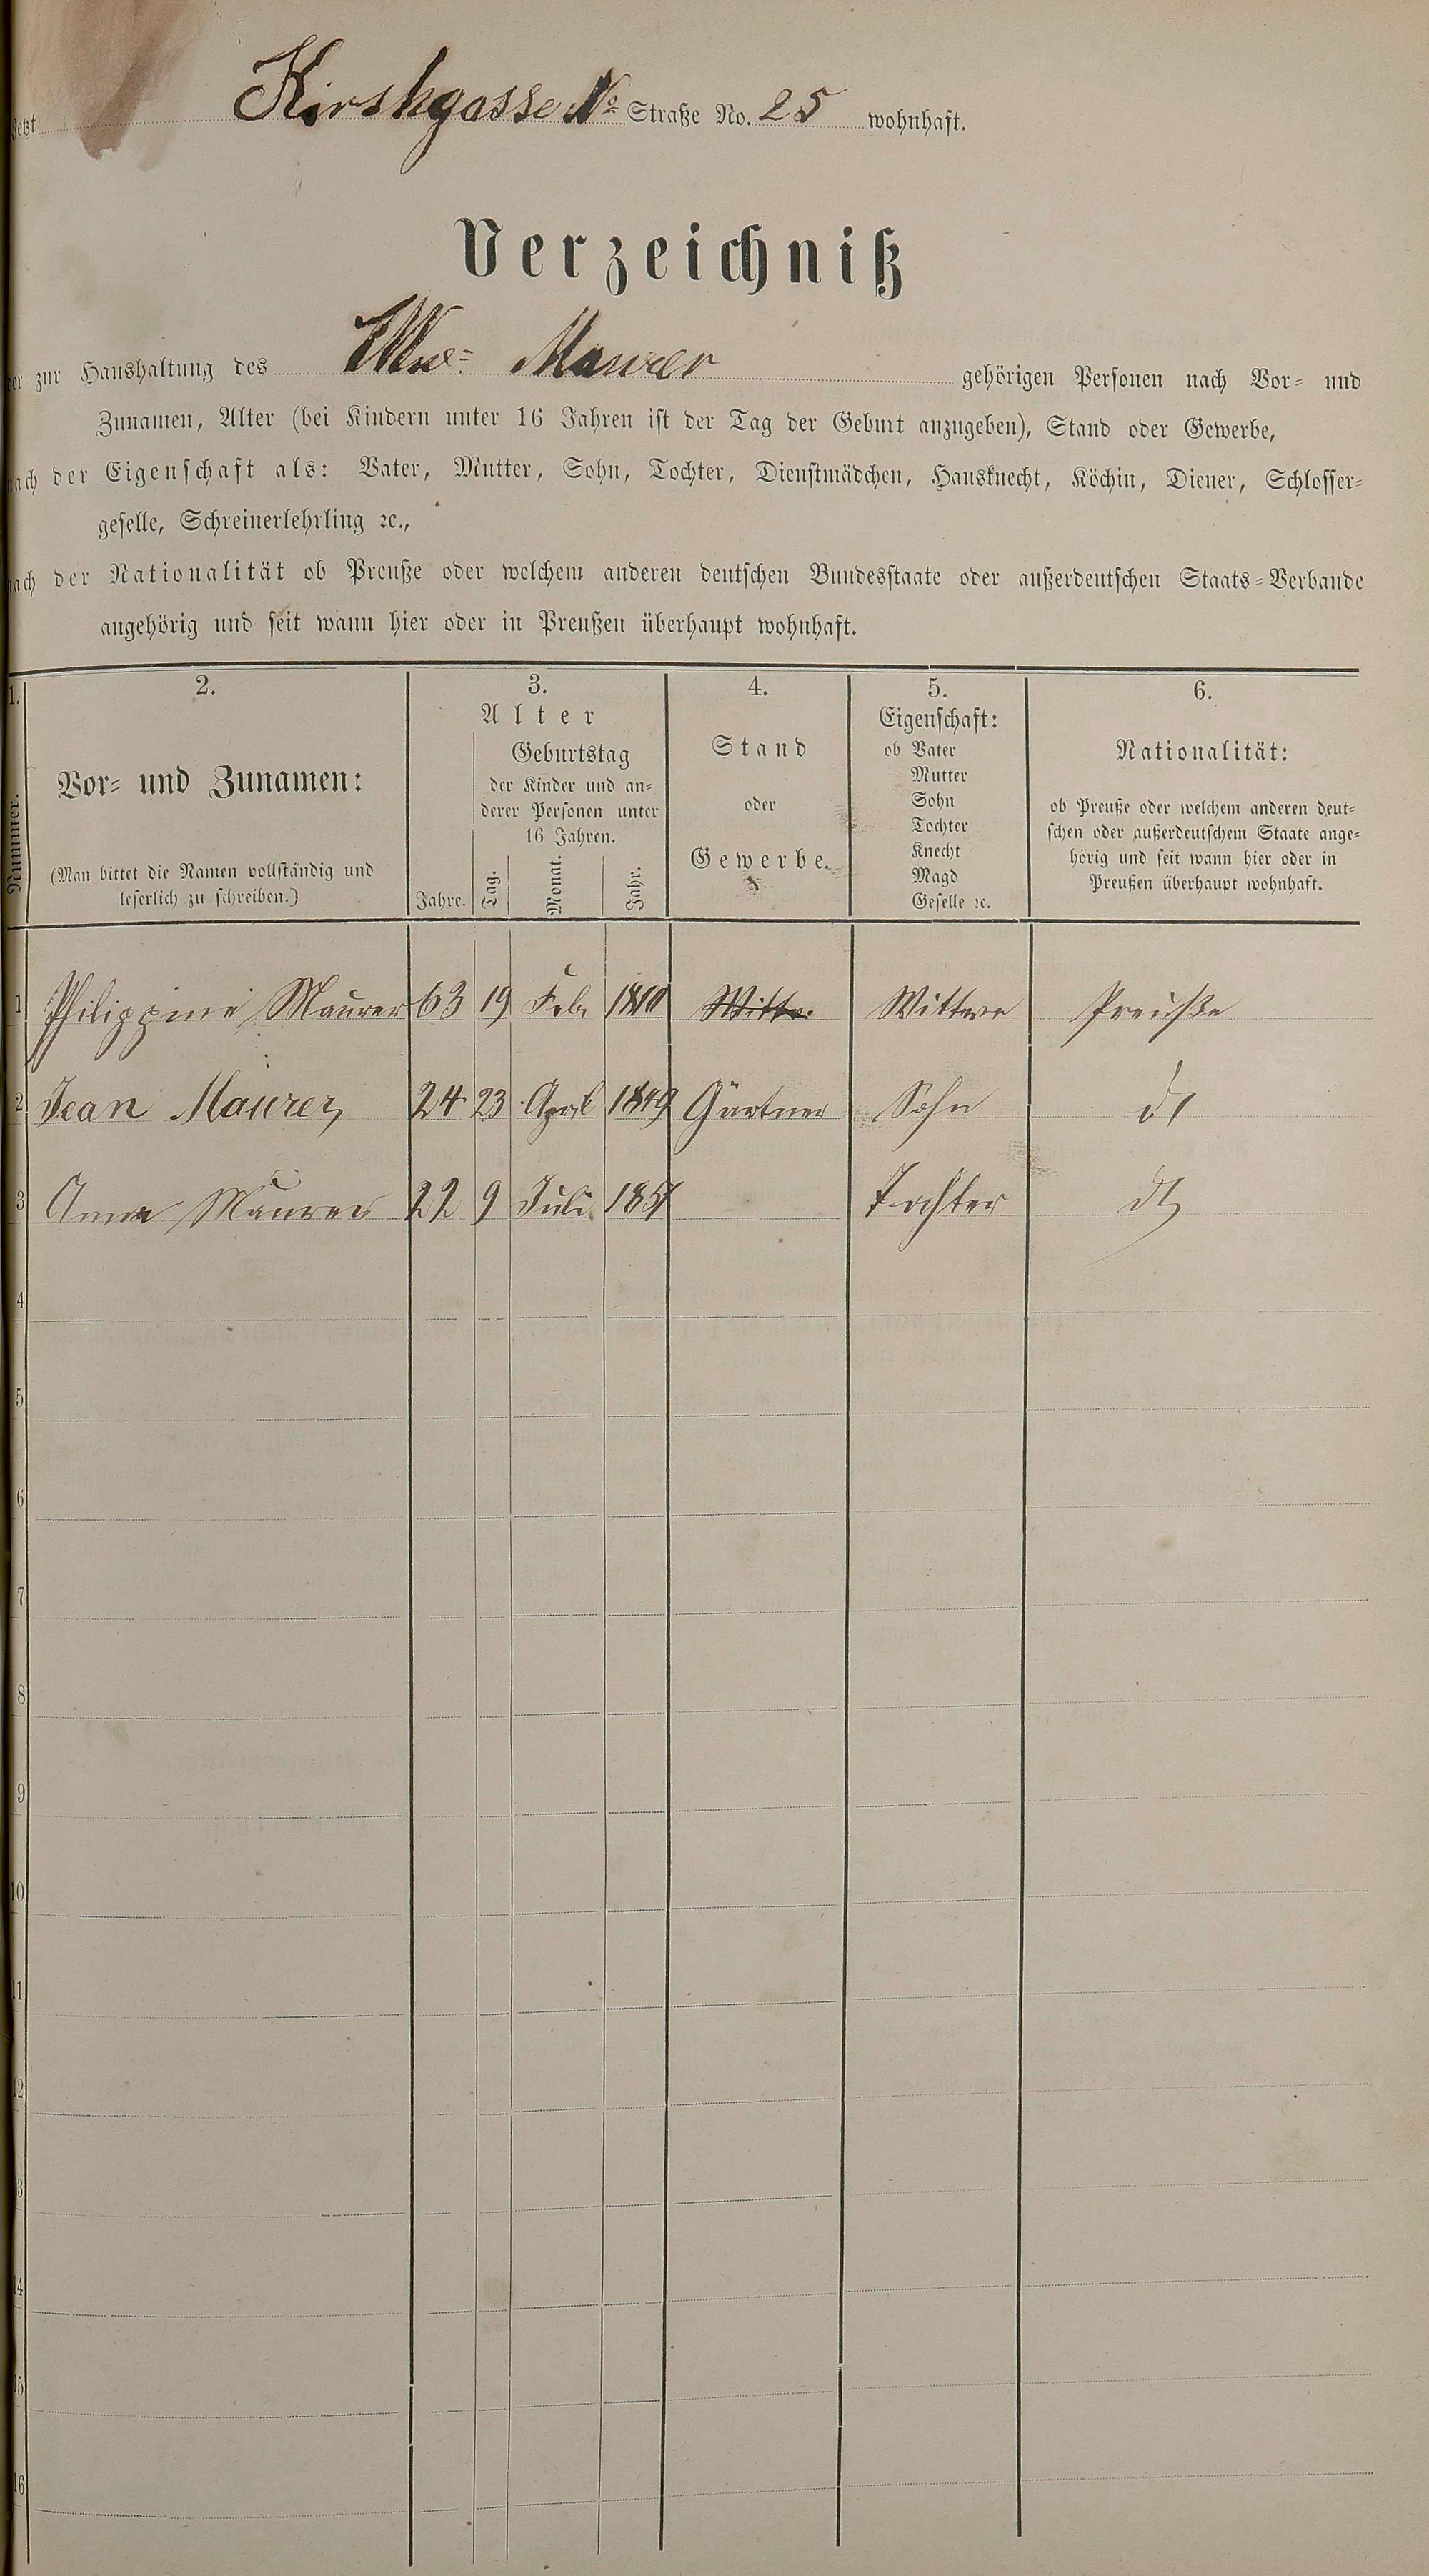 Jetzt Kirshgasse No Straße No. 25 wohnhaft.
Verzeichniß
der zur Haushaltung des Wwe. Maurer gehörigen Personen nach Vor- und
Zunamen, Alter (bei Kindern unter 16 Jahren ist der Tag der Geburt anzugeben), Stand oder Gewerbe,
nach der Eigenschaft als: Vater, Mutter, Sohn, Tochter, Dienstmädchen, Hausknecht, Köchin, Diener, Schlosser-
geselle, Schreinerlehrling ꝛc.,
nach der Nationalität ob Preuße oder welchem anderen deutschen Bundesstaate oder außerdeutschen Staats-Verbande
angehörig und seit wann hier oder in Preußen überhaupt wohnhaft.
1. Nummer.
2.
Vor- und Zunamen:
(Man bittet die Namen vollständig und
leserlich zu schreiben.)
3.
Alter
Jahre.
Geburtstag
der Kinder und an-
derer Personen unter
16 Jahren.
Tag. Monat. Jahr.
4.
Stand
oder
Gewerbe.
5.
Eigenschaft:
ob Vater
Mutter
Sohn
Tochter
Knecht
Magd
Geselle ꝛc.
6.
Nationalität:
ob Preuße oder welchem anderen deut-
schen oder außerdeutschem Staate ange-
hörig und seit wann hier oder in
Preußen überhaupt wohnhaft.
1 Philippine Maurer 63 19 Feb. 1810 Wittwe Preuße
2 Jean Maurer 24 23 April 1849 Gärtner Sohn do
3 Anna Maurer 22 9 Juli 1851 Tochter do
4
5
6
7
8
9
10
11
12
13
14
15
16